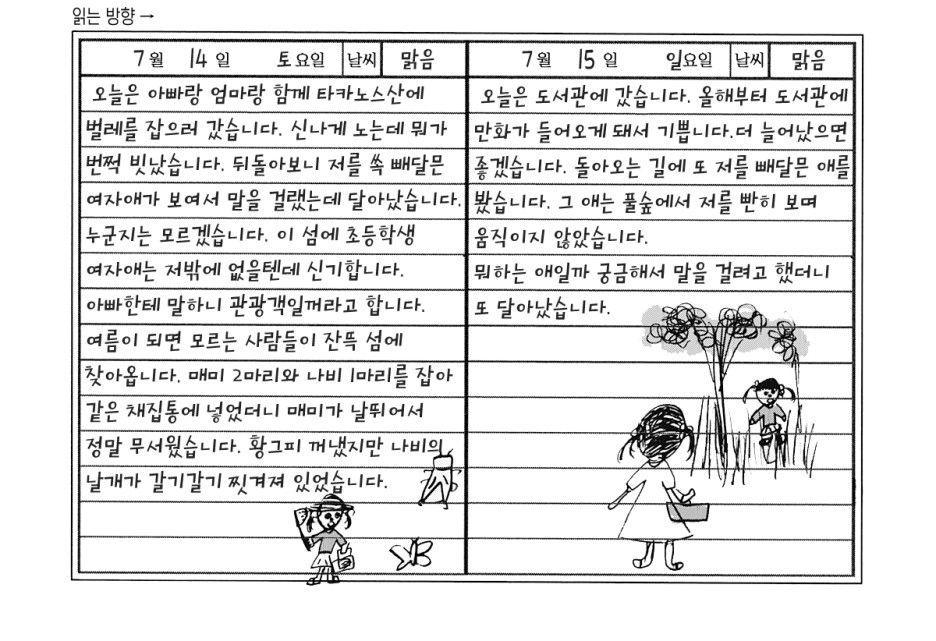 읽는 방향 →
7월 14일 토요일 날씨 맑음
오늘은 아빠랑 엄마랑 함께 타카노스산에
벌레를 잡으러 갔습니다. 신나게 노는데 뭐가
번쩍 빗났습니다. 뒤돌아보니 저를 쏙 빼달믄
여자애가 보여서 말을 걸랬는데 달아났습니다.
누군지는 모르겠습니다. 이 섬에 초등학생
여자애는 저밖에 없을텐데 신기합니다.
아빠한테 말하니 관광객일꺼라고 합니다.
여름이 되면 모르는 사람들이 잔뜩 섬에
찾아옵니다. 매미 2마리와 나비 1마리를 잡아
같은 채집통에 넣었더니 매미가 날뛰어서
정말 무서웠습니다. 황그피 꺼냈지만 나비의
날개가 갈기갈기 찟겨져 있었습니다.
7월 15일 일요일 날씨 맑음
오늘은 도서관에 갔습니다. 올해부터 도서관에
만화가 들어오게 돼서 기쁩니다.더 늘어났으면
좋겠습니다. 돌아오는 길에 또 저를 빼달믄 애를
봤습니다. 그 애는 풀숲에서 저를 빤히 보며
움직이지 않았습니다.
뭐하는 애일까 궁금해서 말을 걸려고 했더니
또 달아났습니다.